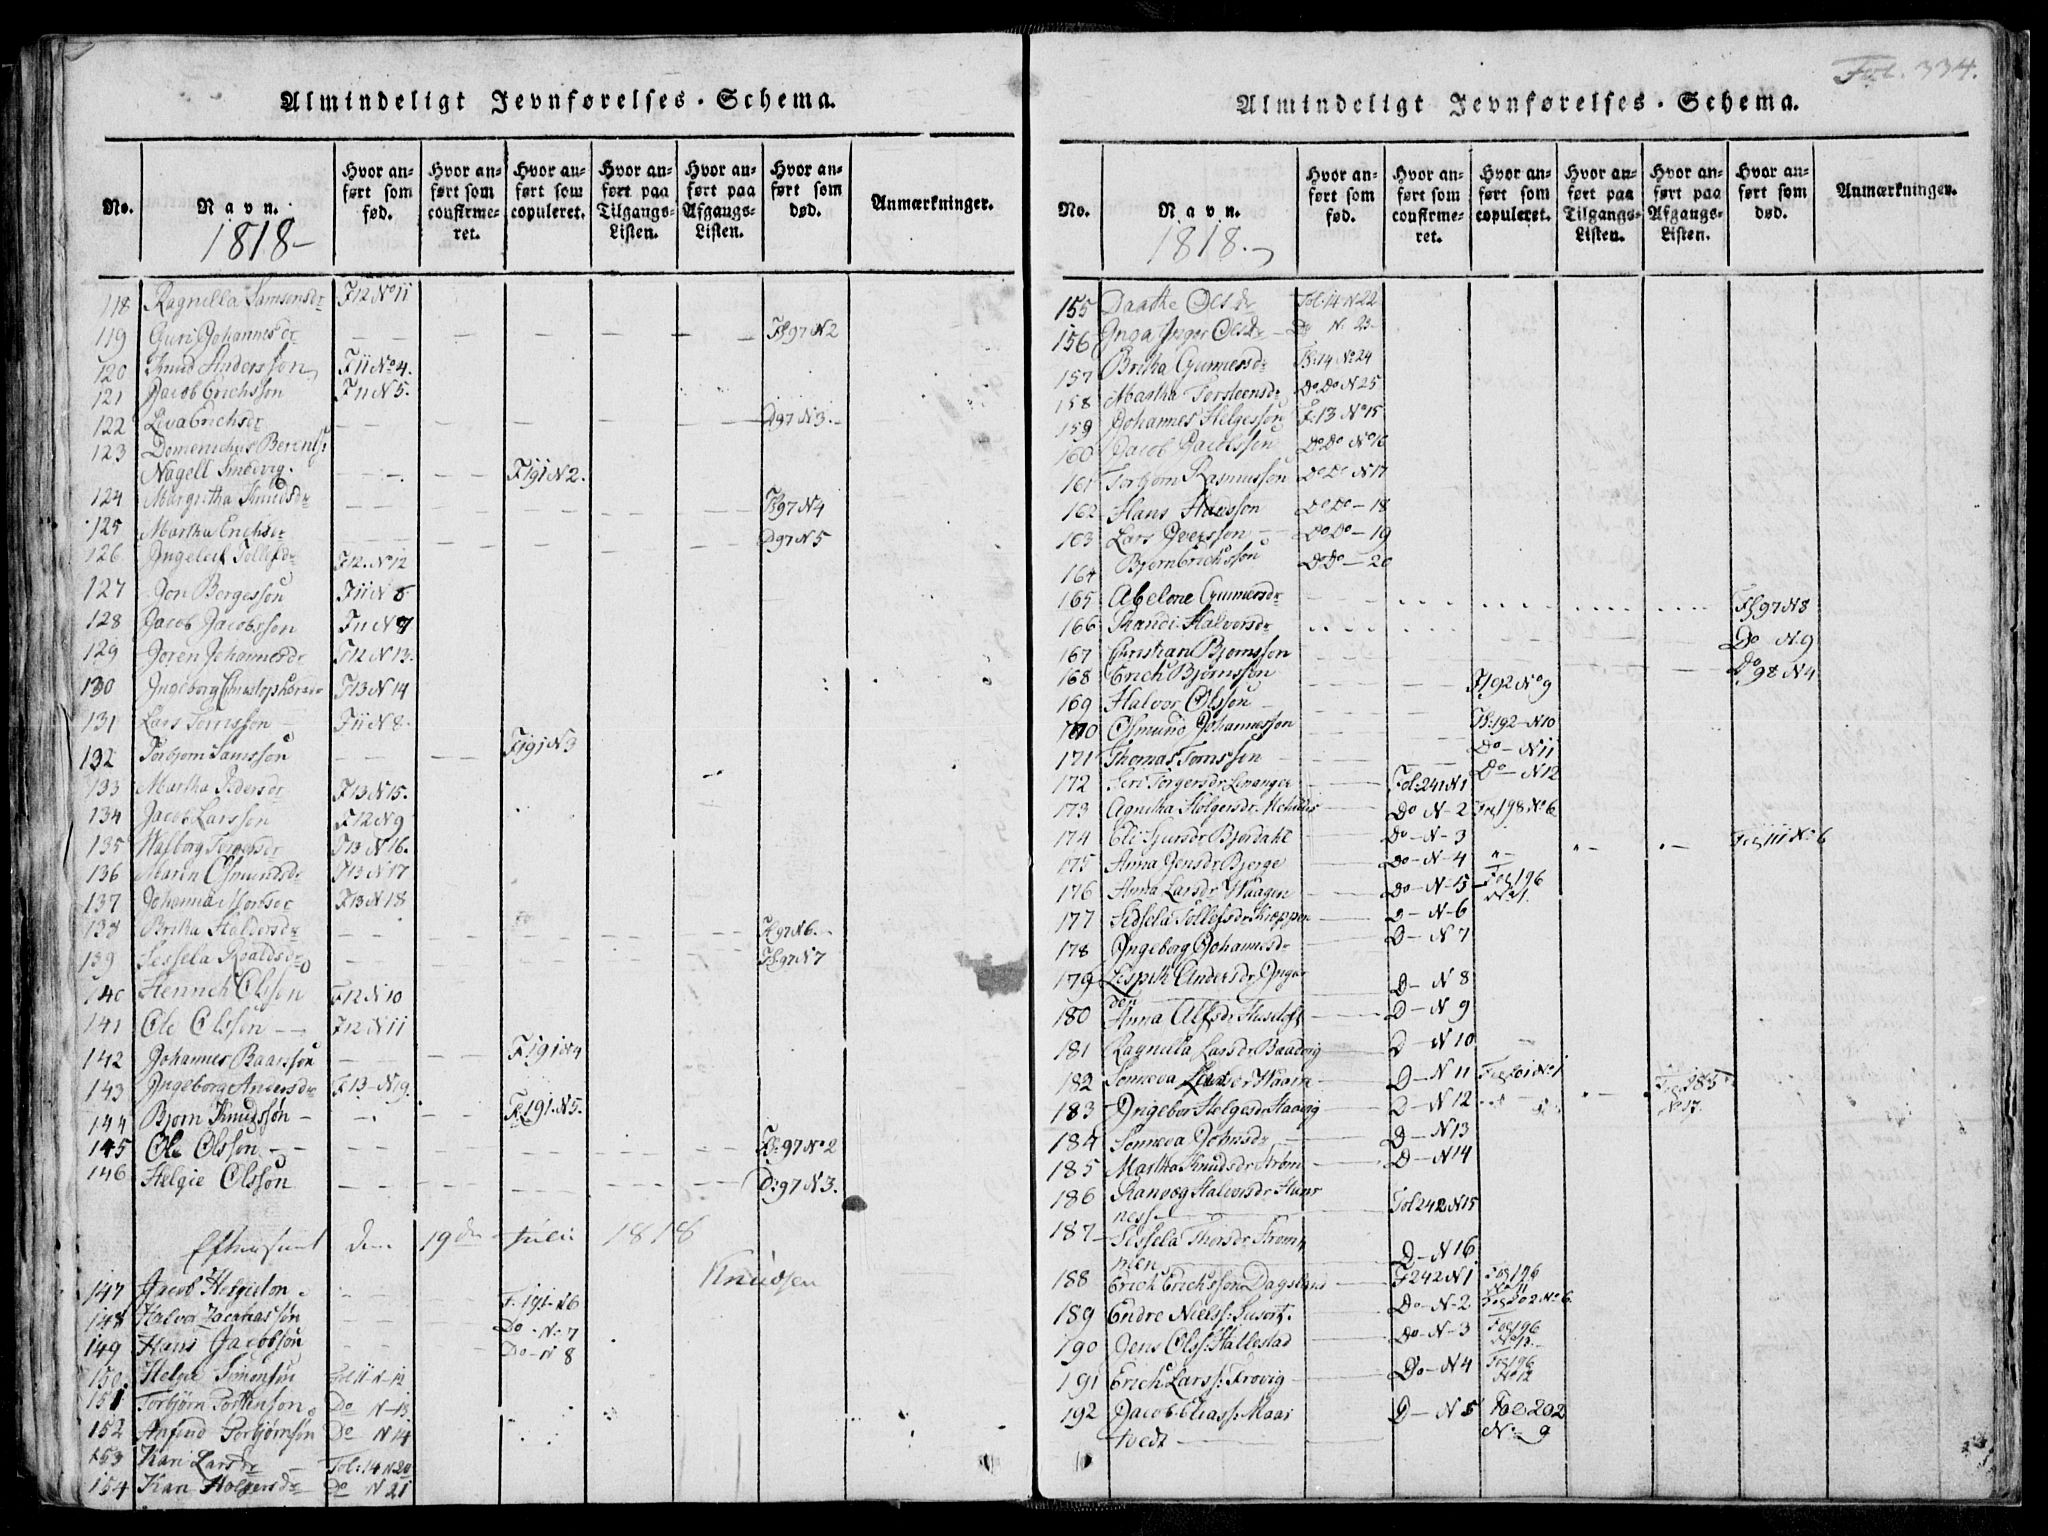 Almindeligt Jevnførelses-Schema.
No.
Navn.
1818-
Hvor anført som fød.
Hvor anført som confirmeret.
Hvor anført som copuleret.
Hvor anført paa Tilgangs-Listen.
Hvor anført paa Afgangs-Listen.
Hvor anført som død.
Anmærkninger.
118 Ragnilla Samsensdr F12 No 11
119 Guri Johannesdr Fl97 N2
120 Knud Anderssøn F11 No 4.
121 Jacob Erichssøn F11 N 5.
122 Liva Erichsdr D97 N3.
123 Domenichus Berents:
Nagell F191 N 2.
124 Margritha Knudsdr Fl97 N4
125 Martha Erichsdr D97 N5
126 Ingeleif Tollefsdr F12. No 12
127 Jon Bergessøn F11 N 6
128 Jacob Jacobssøn F11 N 7
129 Joren Johannesdr F12 N 13.
130 Ingeborg Christophersdr F13 N 14
131 Lars Tomssøn F11 N 8.
132 Torbjørn Samssøn F191 N3
133 Martha Pedersdr F13 N 15.
134 Jacob Larssøn F12 N 9
135 Walborg Torgersdr F13 N 16.
136 Maren Osmundsdr F13 N 17
137 Johanna Monsdr F13 N 18
138 Britha Haldorsdr Fl97 N6.
139 Sessela Roaldsdr Fl97 N7
140 Henrich Olssøn F12 N 10
141 Ole Olssøn F12 N 11
142 Johannes Baarssøn F191 N4
143 Ingeborg Andersdr F13 N 19.
144 Bjørn Knudssøn F191 N5.
145 Ole Olssøn Fl:97 No 2
146 Helgie Olssøn D:97 N 3.
Efterseet den 19de Julii 1818
Knudsen
147 Jacob Helgesøn F. 191 N6
148 Halvor Zachariassøn Do No 7
149 Hans Jacobssøn Do N 8
150 Helgie Simonsøn Fol 11 N 12
151 Torbjørn Do N 13
152 Anfind Torbjørnsøn Do N 14
153 Kari Larsdr Fol: 14 N 20
154 Kari Holgersdr Do N 21
Fol. 334.
Almindeligt Jevnførelses-Schema.
No.
Navn.
1818.
Hvor anført som fød.
Hvor anført som confirmeret.
Hvor anført som copuleret.
Hvor anført paa Tilgangs-Listen.
Hvor anført paa Afgangs-Listen.
Hvor anført som død.
Anmærkninger.
155 Daathe Olsdr Fol: 14 N 22
156 Inga Inger Olsdr Do N. 23
157 Britha Gunnersdr Fl:14 No 24
158 Martha Torsteensdr Do Do N 25
159 Johannes Helgessøn F:13 No 15
160 Jacob Jacobssøn Do Do No 16
161 Torbjørn Rasmussøn Do Do N 17
162 Hans Hanssøn Do Do - 18
163 Lars Iverssøn Do Do - 19
164 Bjørn Erichssøn Do Do - 20
165 Abelone Gunnersdr Fl97 N8
166 Randi Halvorsdr Do N. 9
167 Christian Bjørnssøn Do 98 N4
168 Erich Bjørnssøn F192 No 9
169 Halvor Olssøn Fl:192 - N10
170 Osmund Johannessøn Do - N11
171 Thomas Tomssøn Do - N12
172 Siri Torgersdr Levanger Fol:241 N1
173 Agnitha Holgersdr Do N-2 Fol 198 No 6.
174 Eli Sjursdr Bjordahl Do-N-3
175 Anna Jensdr Bjerge Do-N-4 Fol 111 No 6
176 Anna Larsdr Waagen Do-N-5 Fol 196 No 1.
177 Sidsela Tollefsdr Kroppen D-N-6
178 Ingeborg Johannesdr D-N 7
179 Andersdr
den D-N 8
180 Anna Alfsdr D-N 9
181 Ragnilla Larsdr Baadvig D-N 10
182 Sonneva D-N 11 Fol 201 No 1
183 Ingebor Helgesdr D-N 12 Fol 285 No 17.
184 Sonneva Johnsdr D-N13
185 Martha Knudsdr Strøm D-N14
186 Ranvæg Halvorsdr
ness Fol 242 N15
187 Sessela Thorsdr Strøm
men D-N 16
188 Erich Erichssøn Dagsland F242 N1 Fol 196 No 11
189 Endre Nielss: Susort. Do-N-2 Fol 202 No 6.
190 Jens Olss: Hallestad Do-N-3 Fol 196 No 13
191 Erich Larss: Frovig Do-N4 Fol 196 No 12
192 Jacob Eliass: Maas
tvedt D-N 5 Fol 202 No 9